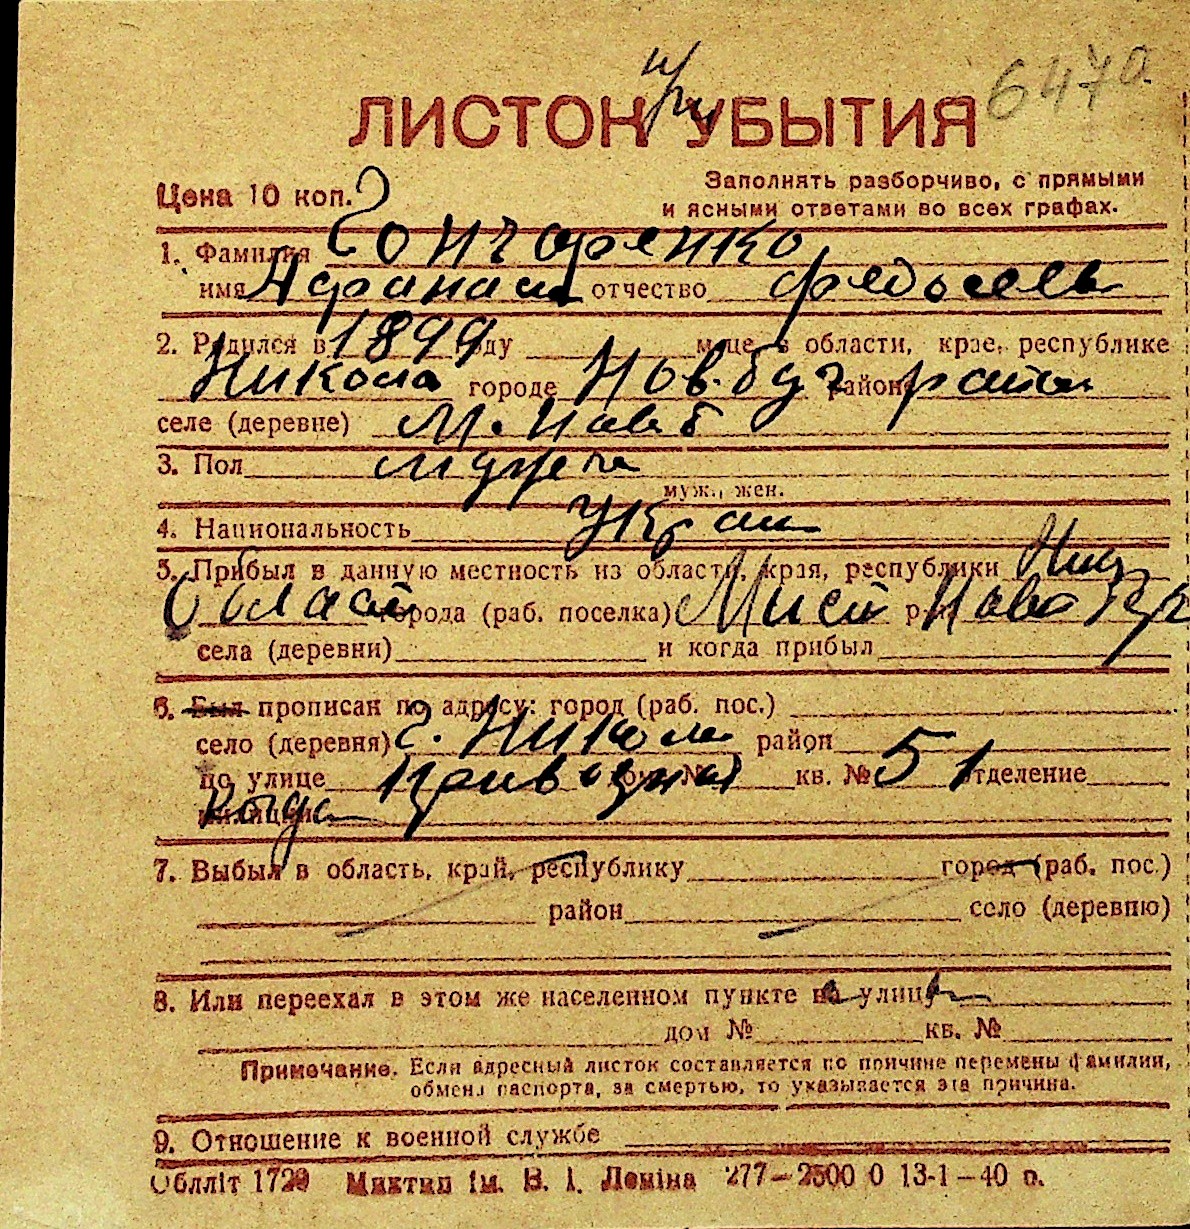 6470
ЛИСТОК при УБЫТИЯ
Цена 10 коп.
Заполнять разборчиво, с прямыми
и ясными ответами во всех графах.
1. Фамилия Гончаренко
имя Афанасий отчество Федосеев
2. Родился в 1899 году м-це в области, крае, республике
Никола городе Нов. Буг районе район
селе (деревне) М. Нов. Б
3. Пол мужч
муж., жен.
4. Национальность Украин
5. Прибыл в данную местность из области, края, республики Ник
Област города (раб. поселка) р-н Ново
села (деревни) и когда прибыл
6. Был прописан по адресу: город (раб. пос.)
село (деревня) г. Никола район
по улице кв. № 51 отделение
милиции
7. Выбыл в область, край, республику город (раб. пос.)
район село (деревню)
8. Или переехал в этом же населенном пункте на улицу
дом № кв. №
Примечание. Если адресный листок составляется по причине перемены фамилии,
обмена паспорта, за смертью, то указывается эта причина.
9. Отношение к военной службе
Облліт 1729 Миктип ім. В. І. Леніна 277—2500 0 13-1—40 р.